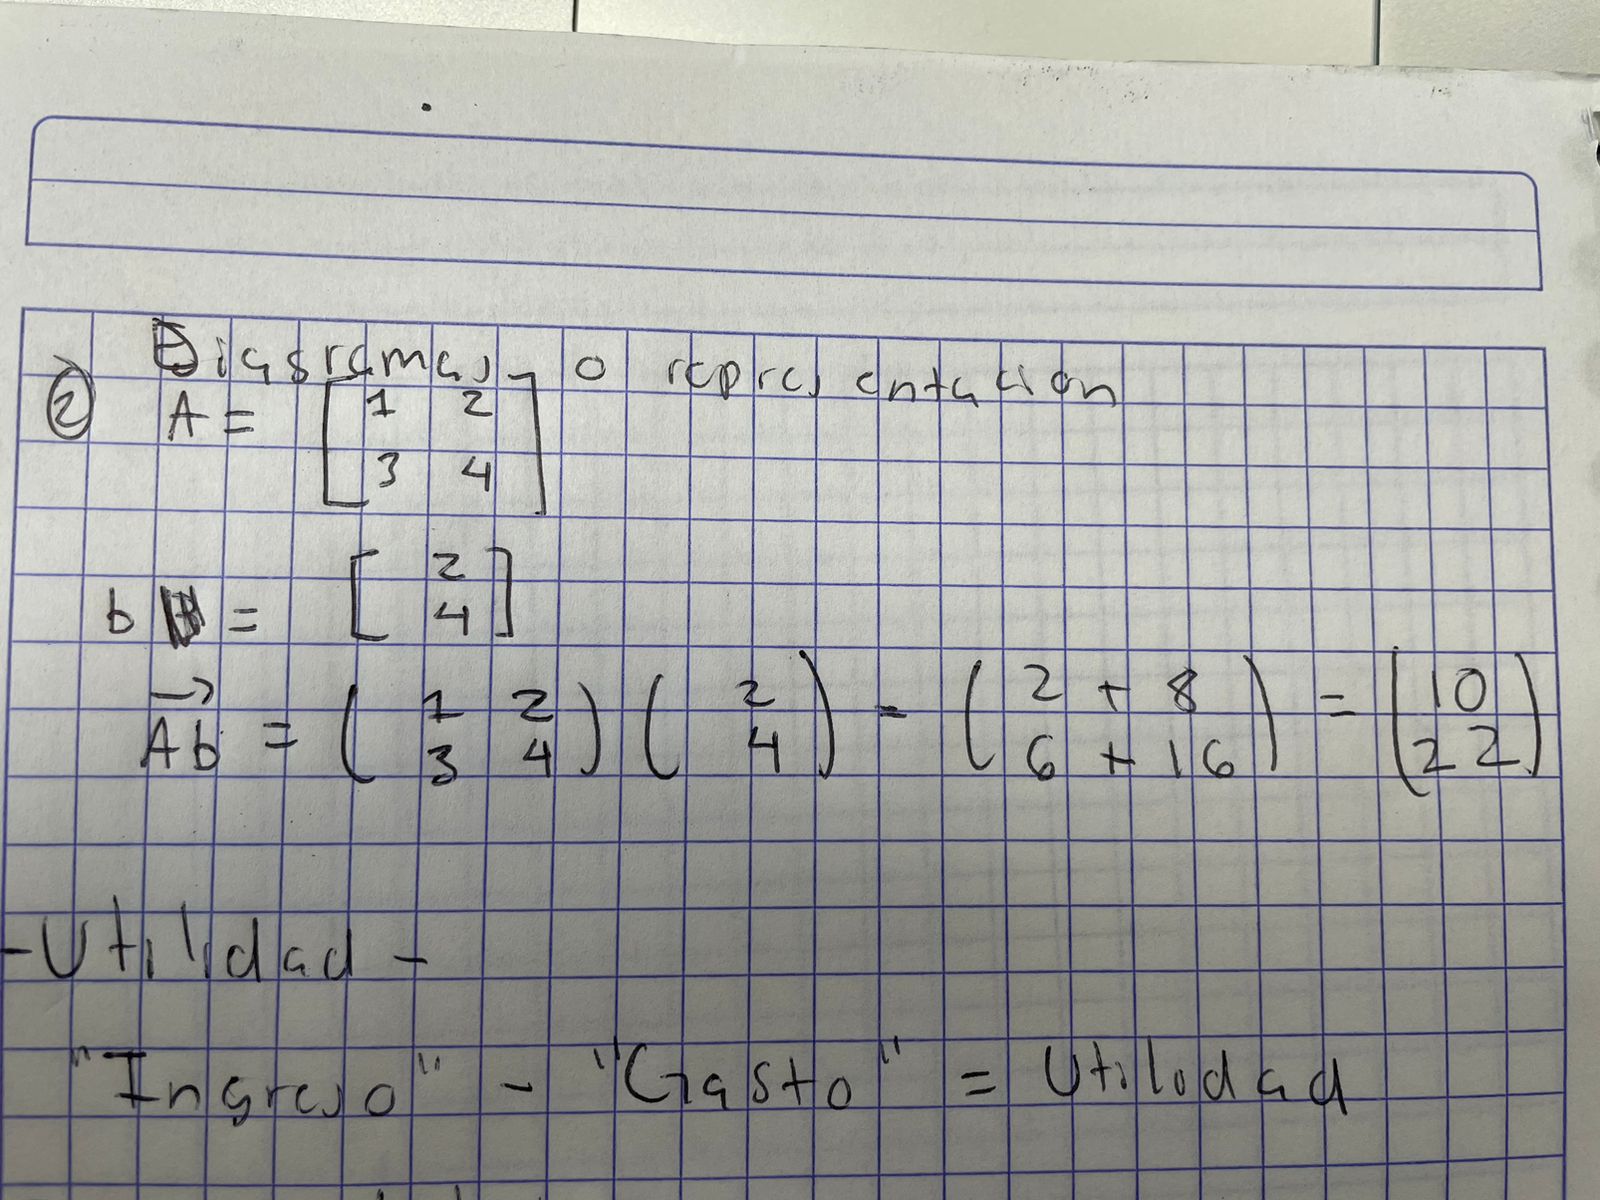 ② Diagramas o representación
A = [ 1 2
3 4 ]
b = [ 2
4 ]
Ab = ( 1 2
3 4 ) ( 2
4 ) = ( 2 + 8
6 + 16 ) = ( 10
22 )
- Utilidad -
"Ingreso" - "Gasto" = Utilidad